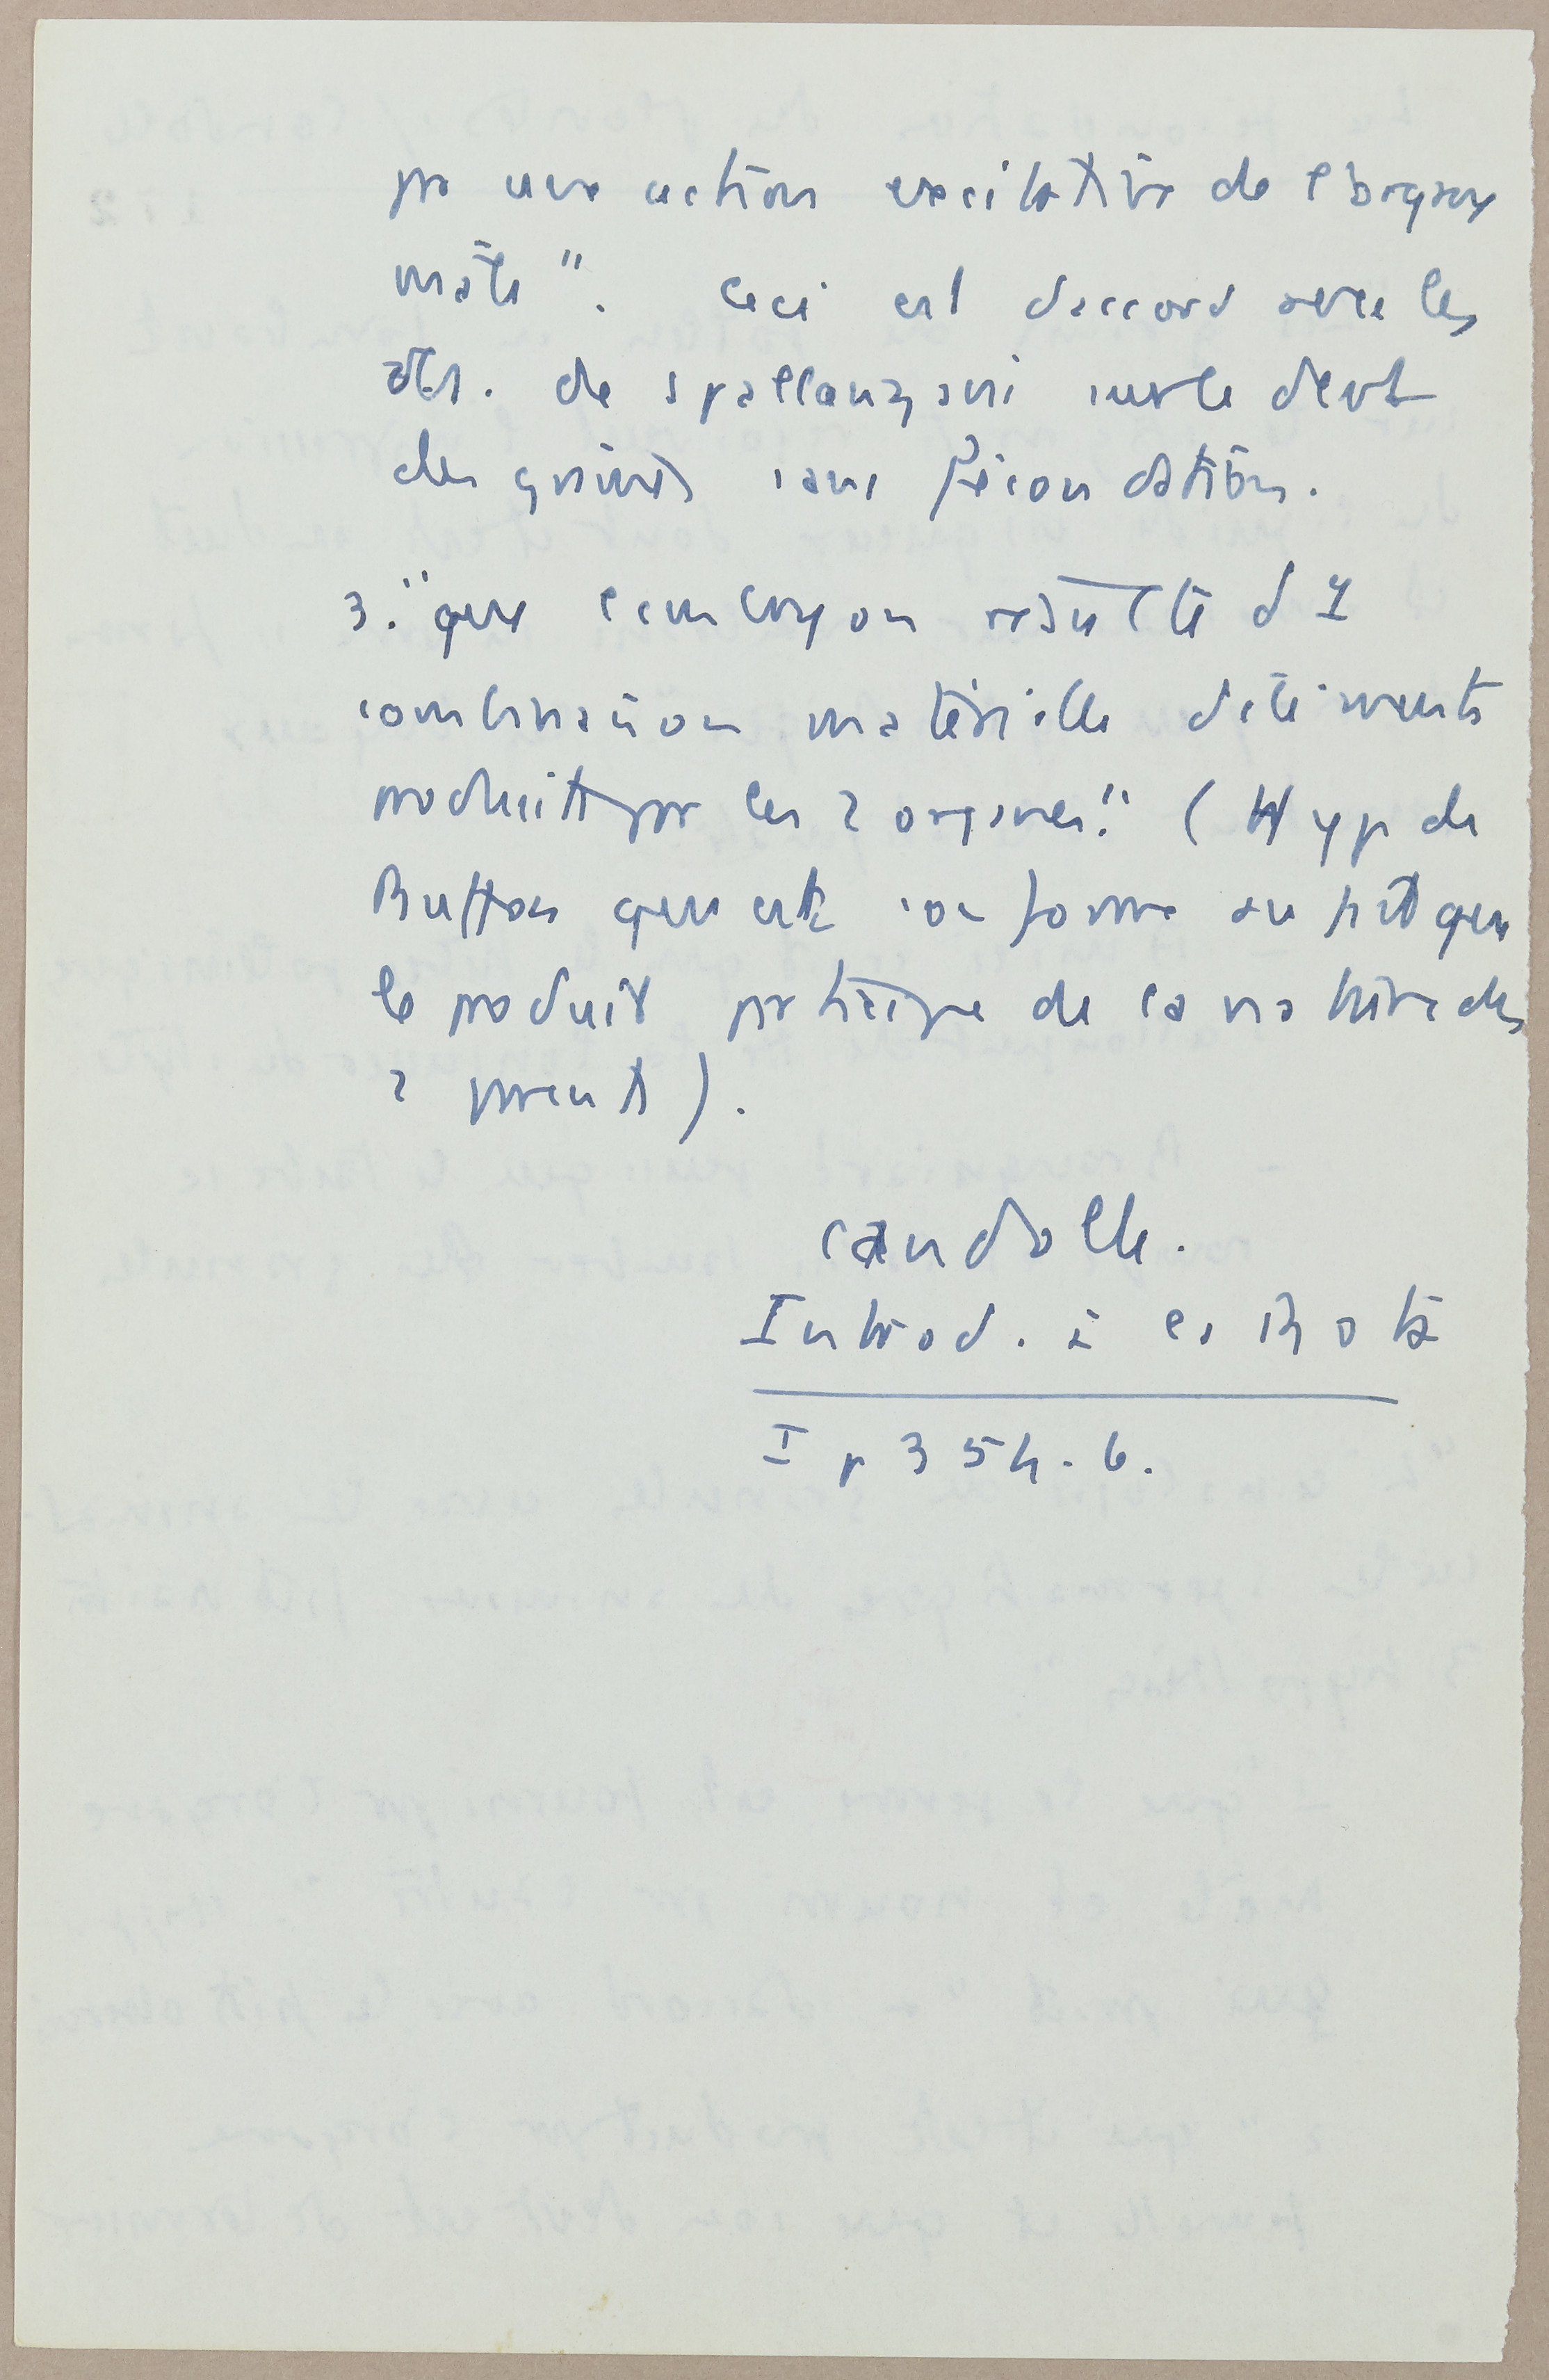 par une action excitative de l'organe
mâle". Ceci est d'accord avec les
obs. de Spallanzani sur le devt
des graines sans fécondation.
3. "que l'embryon résulte d'1
combinaison matérielle d'éléments
produits par les 2 organes." (Hyp de
Buffon qui est conforme au fait que
le produit participe de la nature des
2 parents).
Candolle.
Introd. à la Bota
I p 354-6.